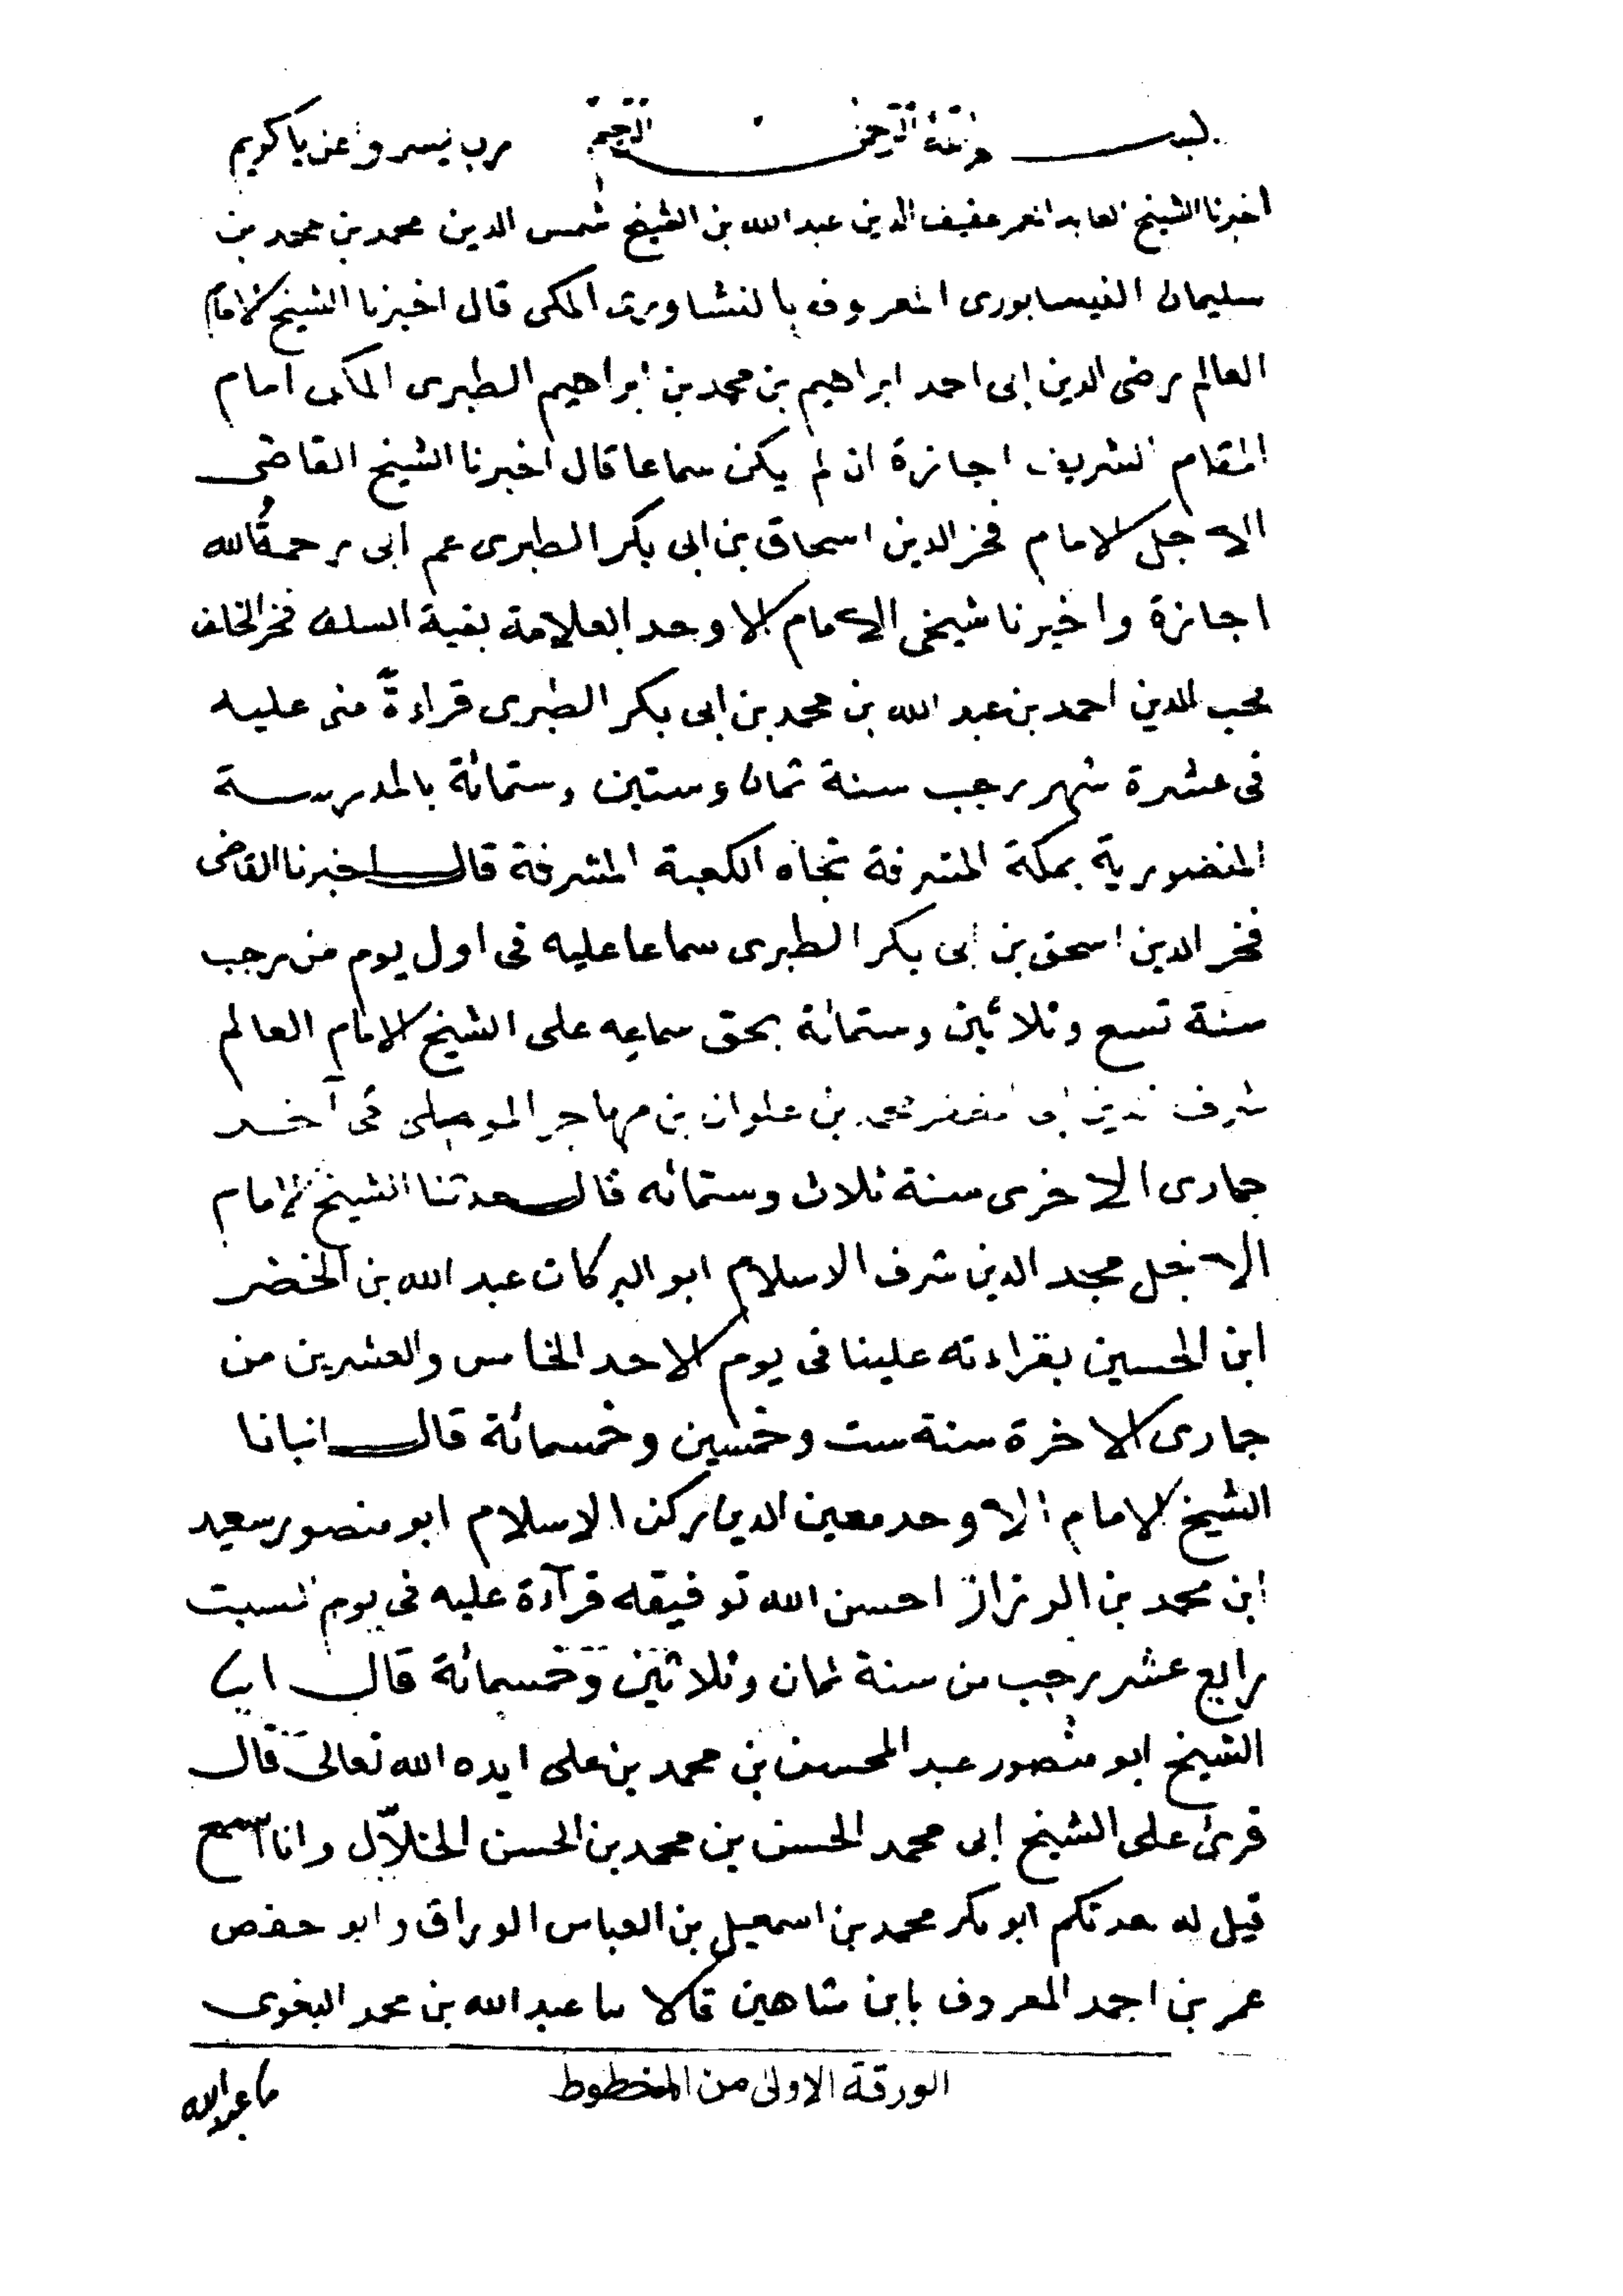 بسم الله الرحمن الرحيم رب يسر واعن يا كريم
اخبرنا الشيخ العابد المعمر عفيف الدين عبد الله بن الشيخ شمس الدين محمد بن محمد بن
سليمان النيسابورى المعروف بالنشاورى المكى قال اخبرنا الشيخ الامام
العالم رضى الدين ابى احمد ابراهيم بن محمد بن ابراهيم الطبرى المكى امام
المقام الشريف اجازة ان لم يكن سماعا قال اخبرنا الشيخ القاضى
الاجل الامام فخر الدين اسحاق بن ابى بكر الطبرى عم ابى رحمة الله
اجازة واخبرنا شيخى الامام الاوحد العلامة بقية السلف فخر الخلف
محب الدين احمد بن عبد الله بن محمد بن ابى بكر الطبرى قراءةً منى عليه
فى عشرة شهر رجب سنة ثمان وستين وستمائة بالمدرسة
المنصورية بمكة المشرفة تجاه الكعبة المشرفة قال اخبرنا القاضى
فخر الدين اسحق بن ابى بكر الطبرى سماعا عليه فى اول يوم من رجب
سنة تسع وثلاثين وستمائة بحق سماعه على الشيخ الامام العالم
شرف الدين ابى المظفر محمد بن علوان بن مهاجر الموصلى فى آخر
جمادى الاخرى سنة ثلاث وستمائه قال حدثنا الشيخ الامام
الاجل مجد الدين شرف الاسلام ابو البركات عبد الله بن الخضر
ابن الحسين بقراءته علينا فى يوم الاحد الخامس والعشرين من
جمادى الاخرة سنة ست وخمسين وخمسمائة قال انبانا
الشيخ الامام الاوحد معين الدين ركن الاسلام ابو منصور سعيد
ابن محمد بن الرزاز احسن الله توفيقه قرآءة عليه فى يوم السبت
رابع عشر رجب من سنة ثمان وثلاثين وخمسمائة قال ابنا
الشيخ ابو منصور عبد المحسن بن محمد بن على ايده الله تعالى قال
قرئ على الشيخ ابى محمد الحسن بن محمد بن الحسن الخلاّل وانا اسمع
قيل له حدثكم ابو بكر محمد بن اسمعيل بن العباس الوراق وابو حفص
عمر بن احمد المعروف بابن شاهين قالا ثنا عبد الله بن محمد البغوى
الورقة الاولى من المخطوط
ثنا عبد الله